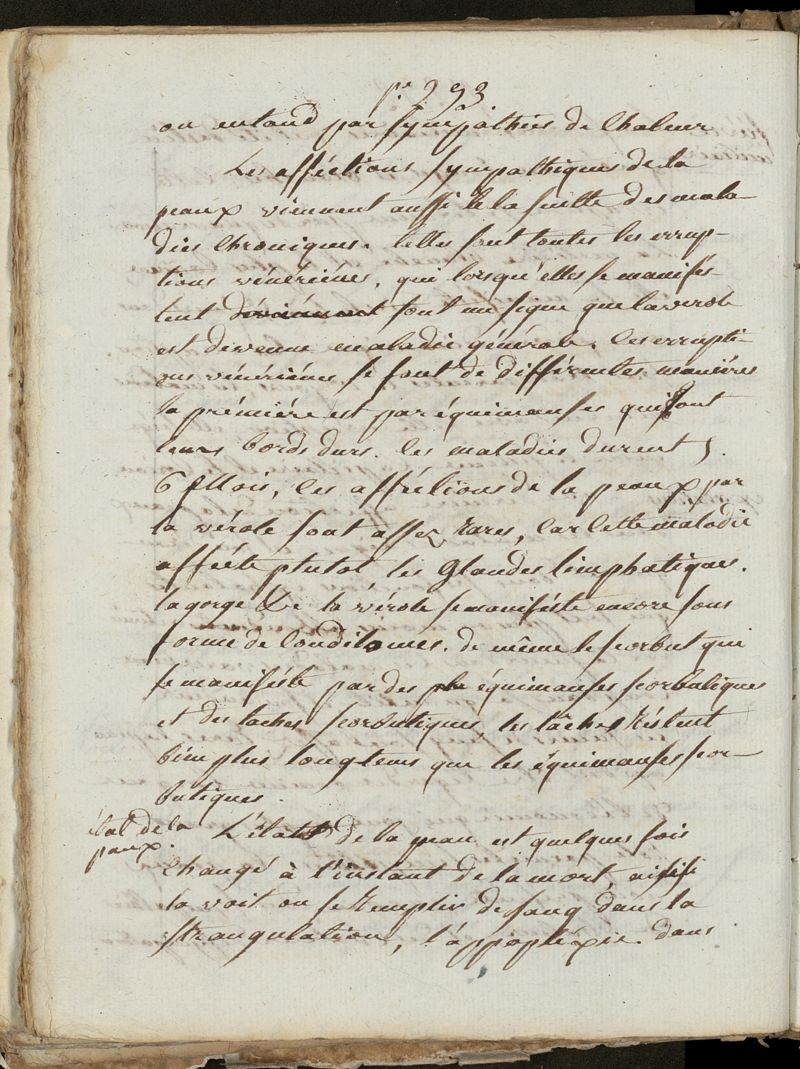 pe 293
on entand par sympathies de Chaleur
Les afféctions sympathiques de la
peaux viennent aussi de la suitte des mala-
dies Chroniques. telles sont toutes les errup-
tions vénériénes, qui lorsqu'elles se manifés-
tent sont un signe que la verole
est devenue maladie générale. les errupti-
ons vénériénes se font de différentes maniéres
la prémiére est par équimauses qui ont
leurs bords durs. les maladies durent 5.
6 Mois, les afféctions de la peaux par
la vérole sont assez rares, Car Cette maladie
afféete plutot les Glandes limphatiques.
la gorge &c la vérole se maniféste encore sous
forme de Condilomes. de même le scorbut qui
se maniféste par des équimauses scorbutiques
et des taches scorbutiques, les tâches réstent
bien plus longtems que les équimauses scor-
butiques.
état de la
peaux.
L'état de la peau est quelques fois
Changé à l'instant de la mort, ainsi
la voit on se remplir de sang dans la
strangulation, l'appopléxie. dans